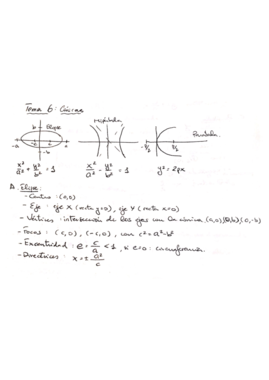 Tema 6: Cónicas
Elipse
hipérbola
Parábola
b
-a
a
-b
-P/2
P/2
x²/a² + y²/b² = 1
x²/a² - y²/b² = 1
y² = 2px
A. Elipse:
- Centro: (0,0)
- Eje: eje X (recta y=0), eje Y (recta x=0)
- Vértices: intersección de los ejes con la cónica (a,0) (0,b) (0,-b)
- Focos: (c,0), (-c,0), con c² = a²-b²
- Excentricidad: e = c/a < 1, si e=0: circunferencia
- Directrices: x = ± a²/c